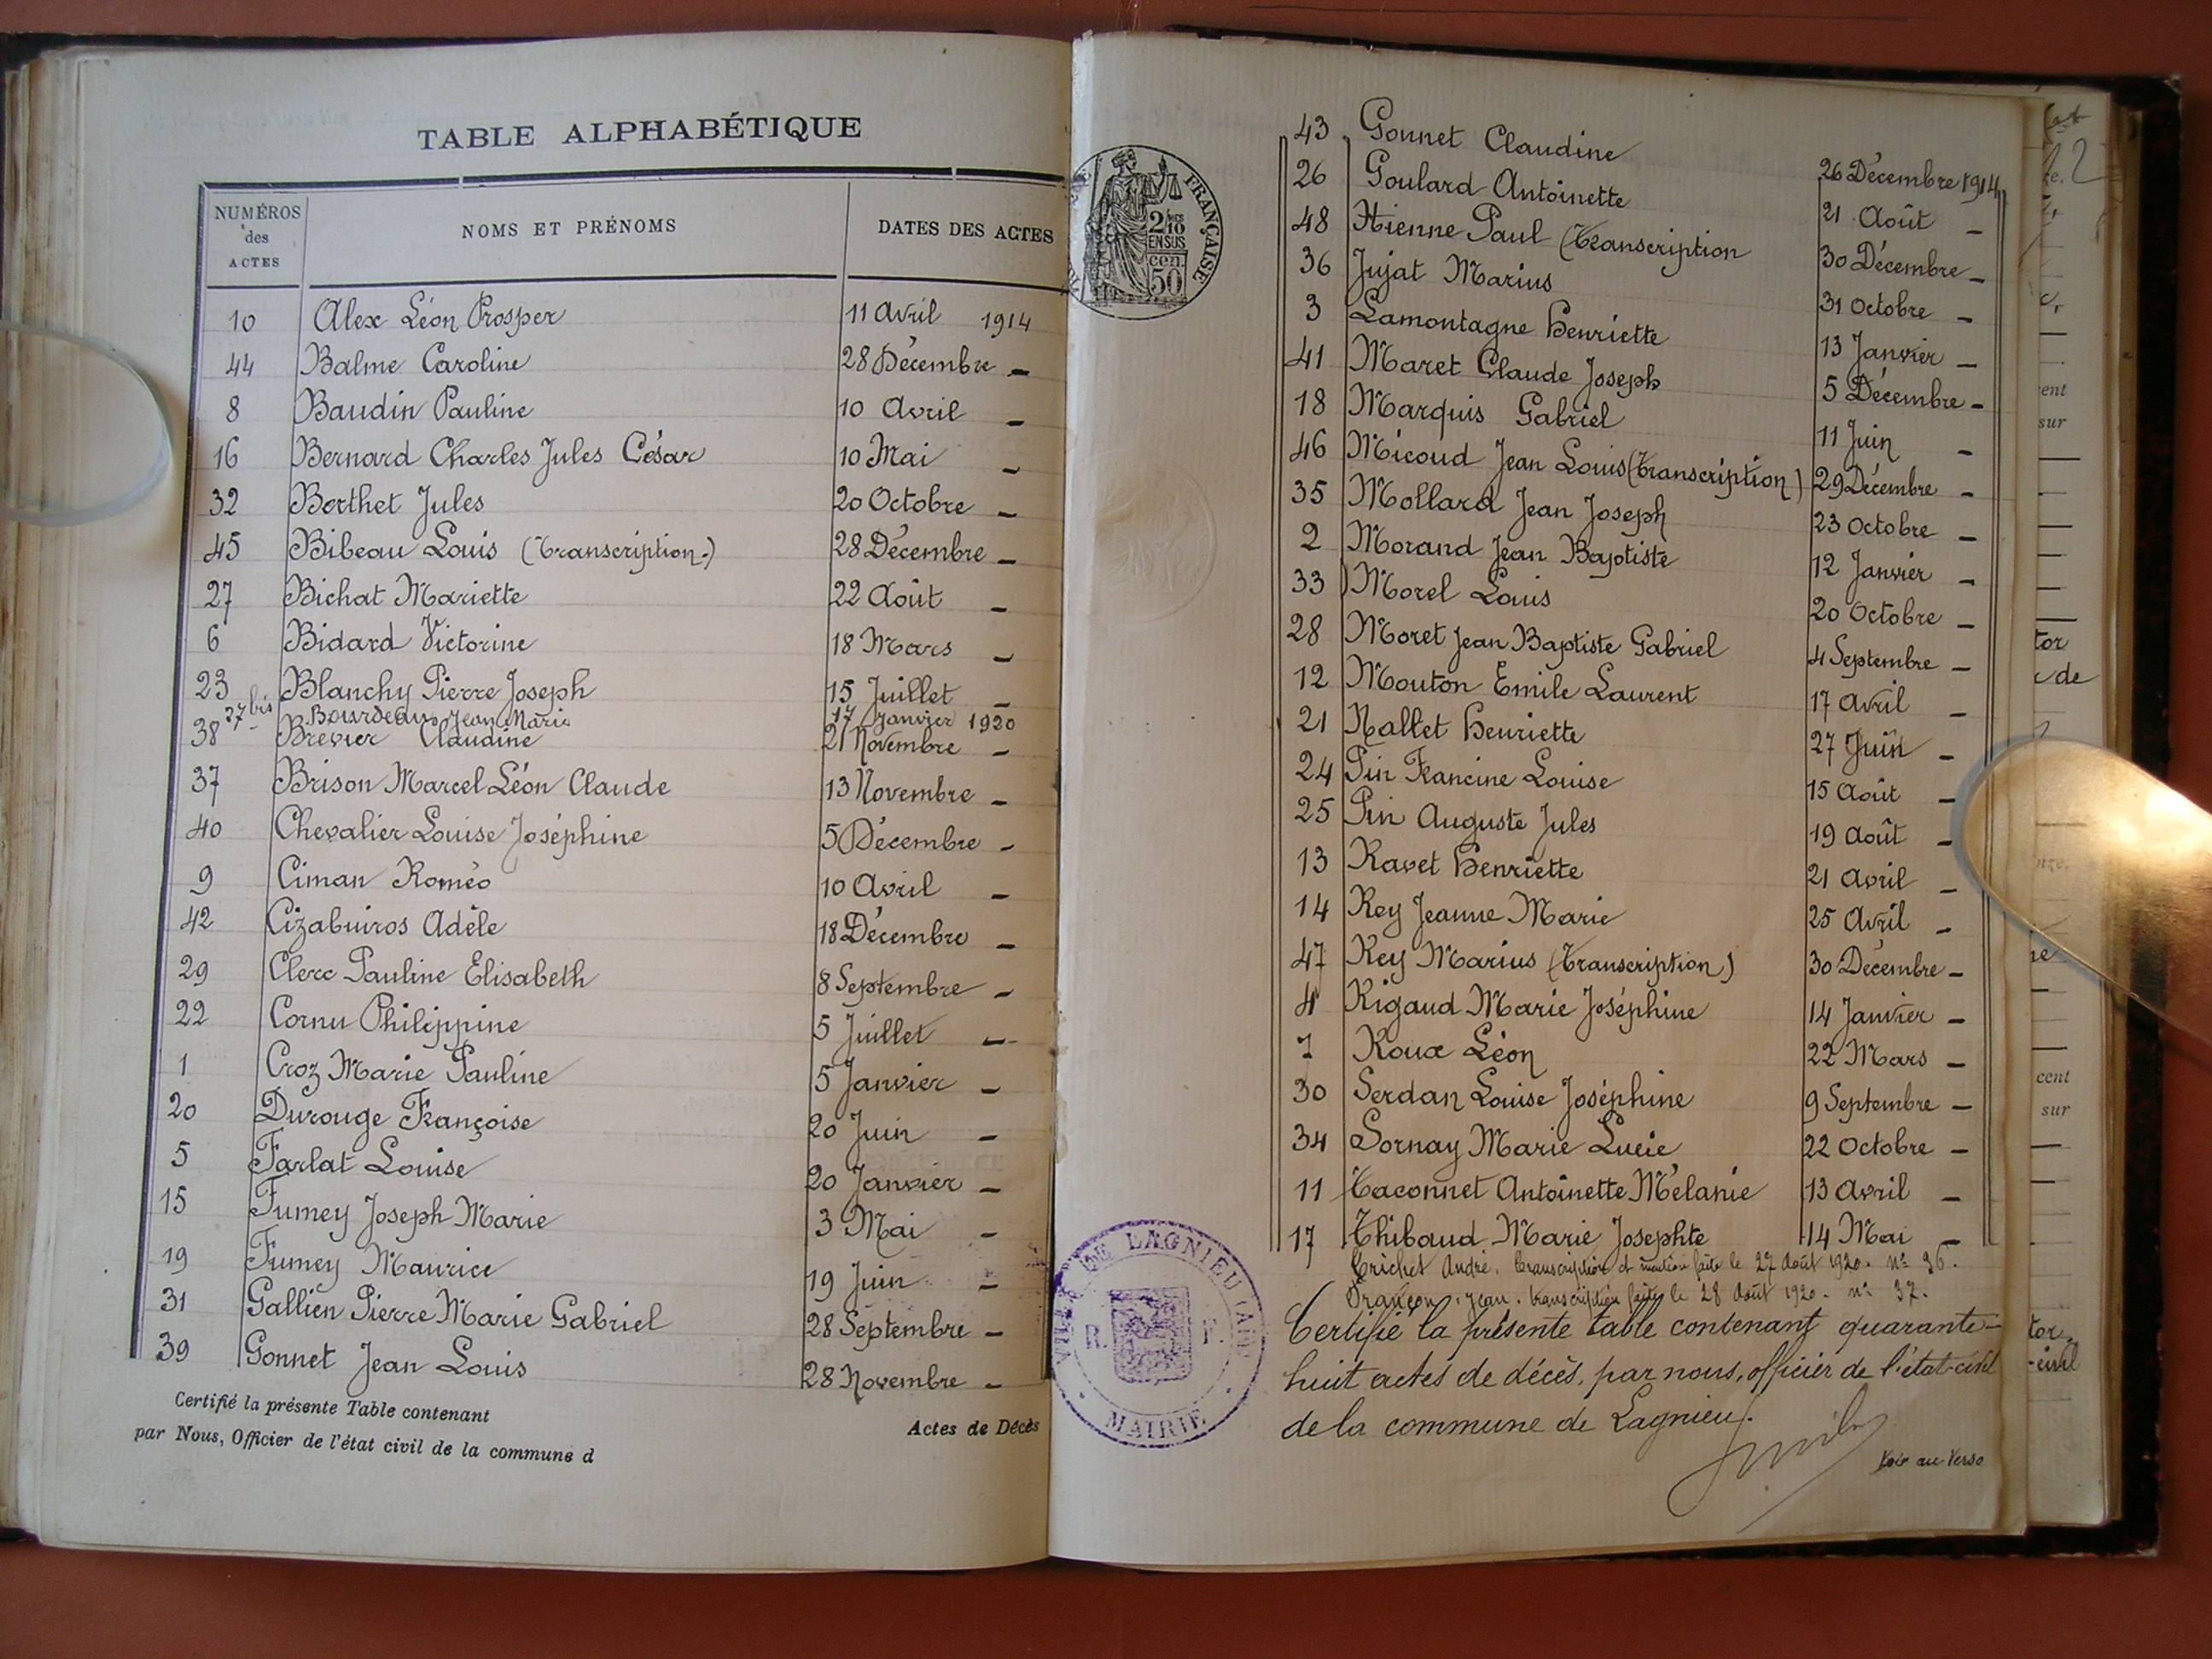 TABLE ALPHABÉTIQUE
NUMÉROS des ACTES NOMS ET PRÉNOMS DATES DES ACTES
10 Alex Léon Prosper 11 Avril 1914
44 Balme Caroline 28 Décembre —
8 Baudin Pauline 10 Avril —
16 Bernard Charles Jules César 10 Mai —
32 Berthet Jules 20 Octobre —
45 Bibeau Louis (Transcription.) 28 Décembre —
27 Bichat Mariette 22 Août —
6 Bidard Victorine 18 Mars —
23 Blanchy Pierre Joseph 15 Juillet —
37 bis Bourdeau Jean Marie 17 Janvier 1920
38 Brevier Claudine 21 Novembre —
37 Brison Marcel Léon Claude 13 Novembre —
40 Chevalier Louise Joséphine 5 Décembre —
9 Ciman Roméo 10 Avril —
42 Cizabuiros Adèle 18 Décembre —
29 Clerc Pauline Elisabeth 8 Septembre —
22 Cornu Philippine 5 Juillet —
1 Croz Marie Pauline 5 Janvier —
20 Durouge Françoise 20 Juin —
5 Farlat Louise 20 Janvier —
15 Fumey Joseph Marie 3 Mai —
19 Fumey Maurice 19 Juin —
31 Gallien Pierre Marie Gabriel 28 Septembre —
39 Gonnet Jean Louis 28 Novembre —
Certifié la présente Table contenant Actes de Décès
par Nous, Officier de l'état civil de la commune d
FRANÇAISE
2/10
EN SUS
50 cen.
43 Gonnet Claudine 26 Décembre 1914
26 Goulard Antoinette 21 Août —
48 Hienne Paul (Transcription 30 Décembre —
36 Jujat Marius 31 Octobre —
3 Lamontagne Henriette 13 Janvier —
41 Maret Claude Joseph 5 Décembre —
18 Marquis Gabriel 11 Juin —
46 Micoud Jean Louis (Transcription) 29 Décembre —
35 Mollard Jean Joseph 23 Octobre —
2 Morand Jean Baptiste 12 Janvier —
33 Morel Louis 20 Octobre —
28 Moret Jean Baptiste Gabriel 4 Septembre —
12 Mouton Emile Laurent 17 Avril —
21 Nallet Henriette 27 Juin —
24 Pin Francine Louise 15 Août —
25 Pin Auguste Jules 19 Août —
13 Ravet Henriette 21 Avril —
14 Rey Jeanne Marie 25 Avril —
47 Rey Marius (Transcription) 30 Décembre —
4 Rigaud Marie Joséphine 14 Janvier —
7 Roux Léon 22 Mars —
30 Serdan Louise Joséphine 9 Septembre —
34 Sornay Marie Lucie 22 Octobre —
11 Taconnet Antoinette Mélanie 13 Avril —
17 Thibaud Marie Josephte 14 Mai —
Trichet André. Transcription et mention faite le 27 Août 1920. N° 36.
Jean. transcription faite le 28 Août 1920. n° 37.
Certifié la présente table contenant quarante-
huit actes de décès, par nous, officier de l'état-civil
de la commune de Lagnieu.
Voir au Verso
DE LAGNIEU (AIN)
R. F.
MAIRIE
ent
sur
tor
de
cent
sur
tor
civil